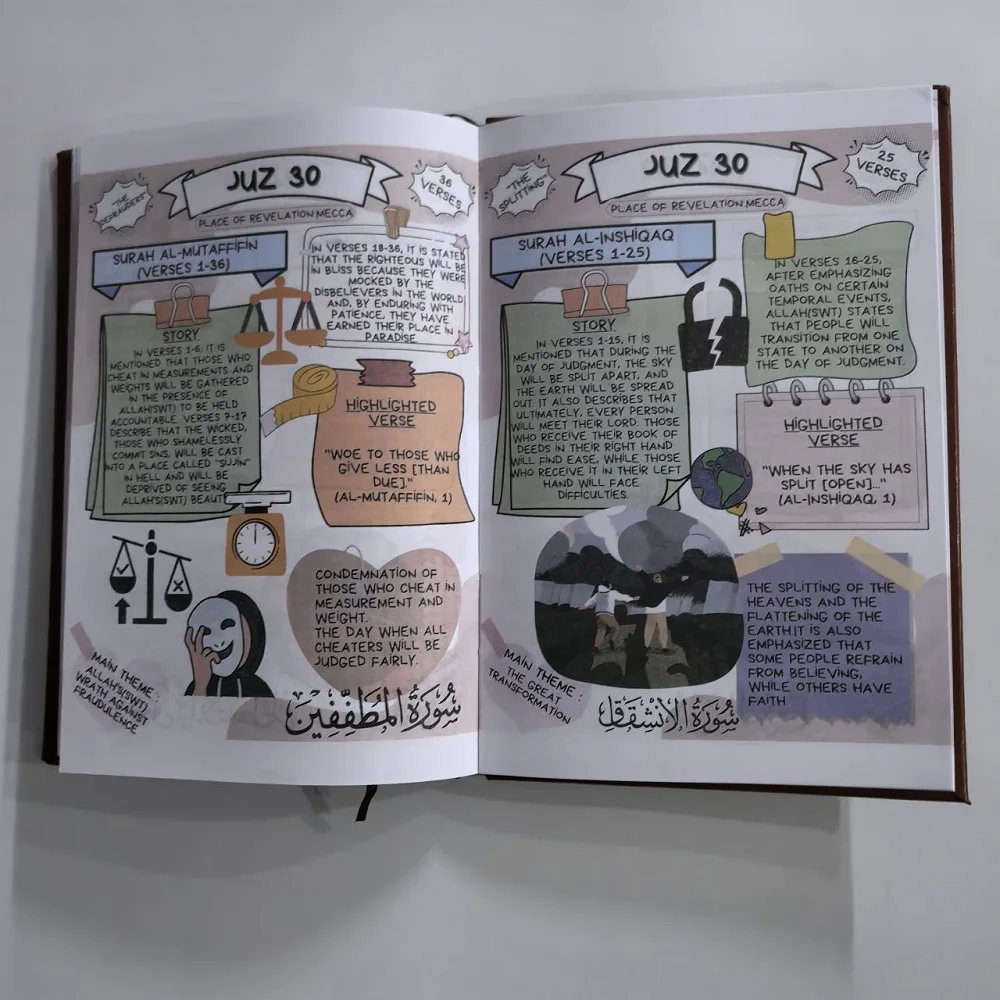 "THE
DEFRAUDERS"
JUZ 30
36
VERSES
PLACE OF REVELATION:MECCA
SURAH AL-MUTAFFIFIN
(VERSES 1-36)
STORY
IN VERSES 1-6, IT IS
MENTIONED THAT THOSE WHO
CHEAT IN MEASUREMENTS AND
WEIGHTS WILL BE GATHERED
IN THE PRESENCE OF
ALLAH(SWT) TO BE HELD
ACCOUNTABLE. VERSES 7-17
DESCRIBE THAT THE WICKED,
THOSE WHO SHAMELESSLY
COMMIT SINS, WILL BE CAST
INTO A PLACE CALLED "SIJJIN"
IN HELL AND WILL BE
DEPRIVED OF SEEING
ALLAH'S(SWT) BEAUTY
IN VERSES 18-36, IT IS STATED
THAT THE RIGHTEOUS WILL BE
IN BLISS BECAUSE THEY WERE
MOCKED BY THE
DISBELIEVERS IN THE WORLD
AND, BY ENDURING WITH
PATIENCE, THEY HAVE
EARNED THEIR PLACE IN
PARADISE.
HIGHLIGHTED
VERSE
"WOE TO THOSE WHO
GIVE LESS [THAN
DUE]."
(AL-MUTAFFIFIN, 1)
CONDEMNATION OF
THOSE WHO CHEAT IN
MEASUREMENT AND
WEIGHT.
THE DAY WHEN ALL
CHEATERS WILL BE
JUDGED FAIRLY.
MAIN THEME :
ALLAH'S(SWT)
WRATH AGAINST
FRAUDULENCE
سُورَةُ المُطَفِّفِينَ
"THE
SPLITTING"
JUZ 30
25
VERSES
PLACE OF REVELATION:MECCA
SURAH AL-INSHIQAQ
(VERSES 1-25)
STORY
IN VERSES 1-15, IT IS
MENTIONED THAT DURING THE
DAY OF JUDGMENT, THE SKY
WILL BE SPLIT APART, AND
THE EARTH WILL BE SPREAD
OUT. IT ALSO DESCRIBES THAT
ULTIMATELY, EVERY PERSON
WILL MEET THEIR LORD. THOSE
WHO RECEIVE THEIR BOOK OF
DEEDS IN THEIR RIGHT HAND
WILL FIND EASE, WHILE THOSE
WHO RECEIVE IT IN THEIR LEFT
HAND WILL FACE
DIFFICULTIES.
IN VERSES 16-25,
AFTER EMPHASIZING
OATHS ON CERTAIN
TEMPORAL EVENTS,
ALLAH(SWT) STATES
THAT PEOPLE WILL
TRANSITION FROM ONE
STATE TO ANOTHER ON
THE DAY OF JUDGMENT.
HIGHLIGHTED
VERSE
"WHEN THE SKY HAS
SPLIT [OPEN]..."
(AL-INSHIQAQ, 1)
THE SPLITTING OF THE
HEAVENS AND THE
FLATTENING OF THE
EARTH.IT IS ALSO
EMPHASIZED THAT
SOME PEOPLE REFRAIN
FROM BELIEVING,
WHILE OTHERS HAVE
FAITH
MAIN THEME :
THE GREAT
TRANSFORMATION
سُورَةُ الانْشِقَاقِ